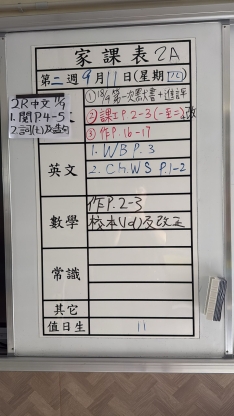 家課表 2A
第二週9月11日(星期四)
2R中文 11/9
1. 閱P.4-5
2. 詞(七)及造句
①18/9 第一次默書+進評
②課工P.2-3(一至二)改
③作P.16-17
英文
1. WB P.3
2. Ch.WS P.1-2
數學
作P.2-3
校本1(d)及改正
常識
其它
值日生 11